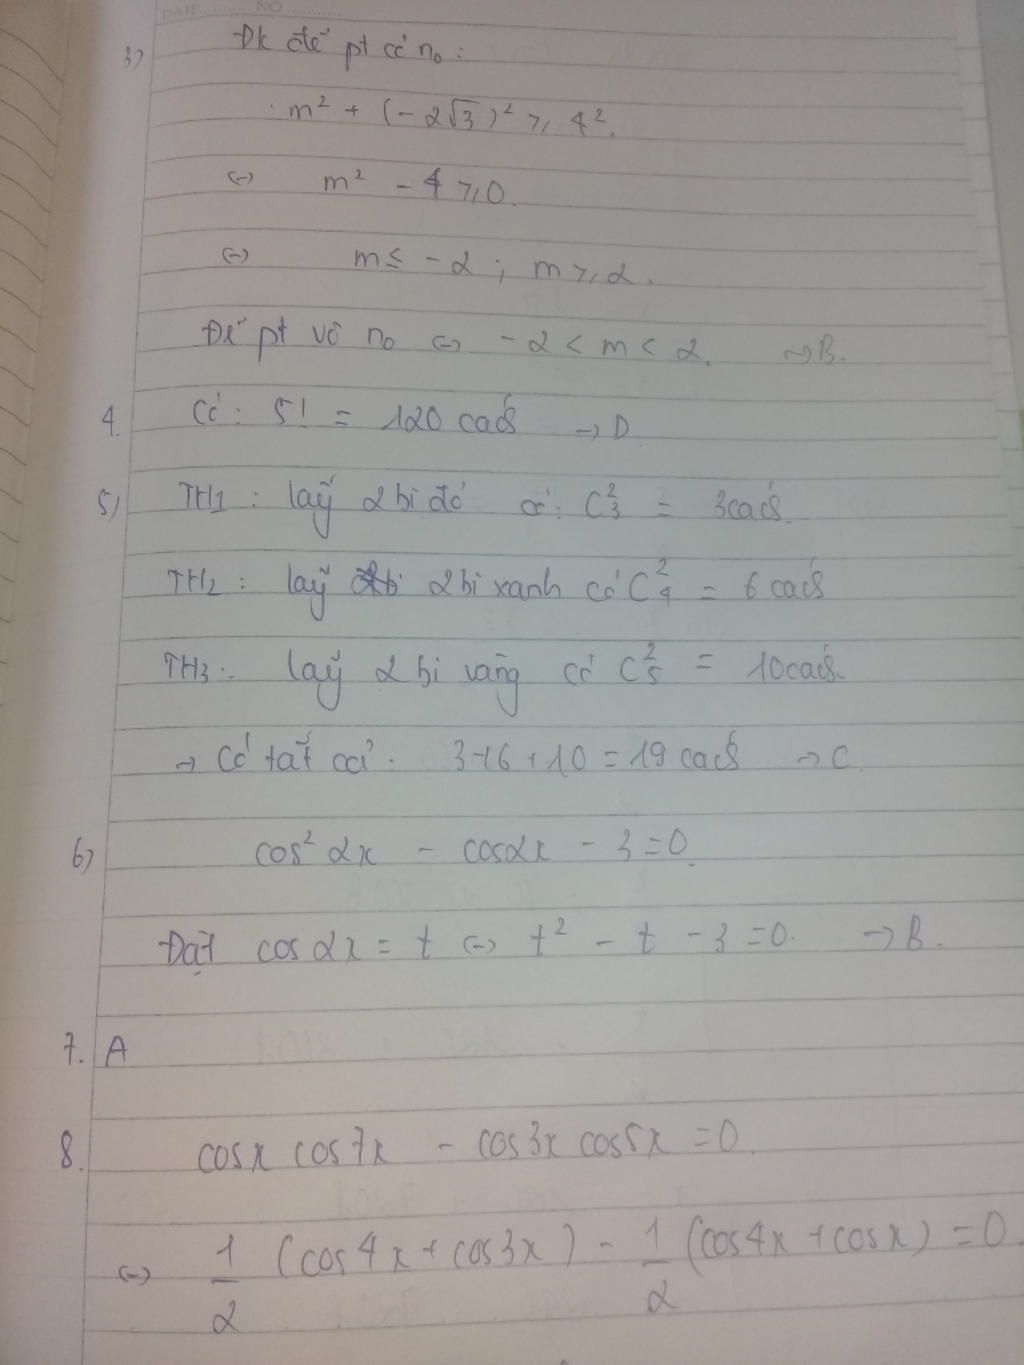 DATE NO
3) Đk để pt có n₀ :
m² + (-2√3)² ≥ 4².
<-> m² - 4 ≥ 0.
<-> m ≤ -2 ; m ≥ 2.
Để pt vô n₀ <-> -2 < m < 2. -> B.
4. Có : 5! = 120 cách -> D
5) TH1 : lấy 2 bi đỏ có : C²₃ = 3 cách.
TH2 : lấy 2 bi xanh có C²₄ = 6 cách
TH3 : lấy 2 bi vàng có C²₅ = 10 cách.
-> Có tất cả : 3+6+10 = 19 cách -> C.
6) cos² 2x - cos2x - 3 = 0.
Đặt cos 2x = t <-> t² - t - 3 = 0. -> B.
7. A
8. cosx cos7x - cos3x cos5x = 0.
<-> 1/2 (cos4x + cos3x) - 1/2 (cos4x + cosx) = 0.